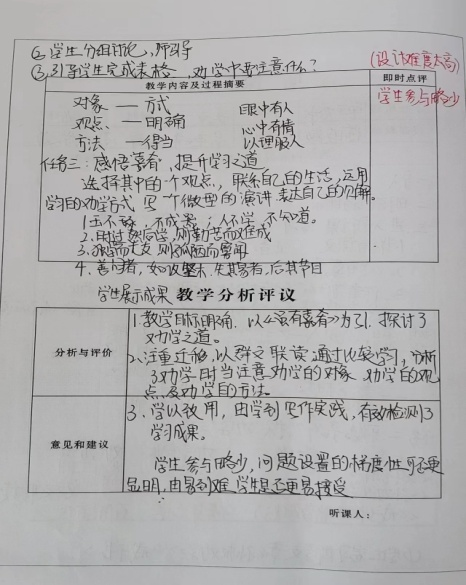 ②学生分组讨论,师引导
③引导学生完成表格,劝学中要注意什么?
(设计难度太高)
教学内容及过程摘要
即时点评
对象 — 方式 眼中有人
学生参与略少
观点 — 明确 心中有情
方法 — 得当 以理服人
任务三:感悟喜看,提升学习之道
选择其中的一个观点,联系自己的生活,运用
学习的劝学方式,写一个微型的演讲,表达自己的见解。
1.玉不琢,不成器;人不学,不知道。
2.时过然后学,则勤苦而难成
3.独学而无友,则孤陋而寡闻
4.善问者,如攻坚木,先其易者,后其节目
学生展示成果
教学分析评议
分析与评价
1.教学目标明确,以《喜看》为引,探讨了
劝学之道。
2.注重迁移,以群文联读,通过比较学习,分析
了劝学时当注意劝学的对象、劝学的观
点及劝学的方法。
意见和建议
3.学以致用,由学到写作实践,有效检测了
学习成果。
学生参与略少,问题设置的梯度性可否更
显明,由易到难,学生是否更易接受
听课人: